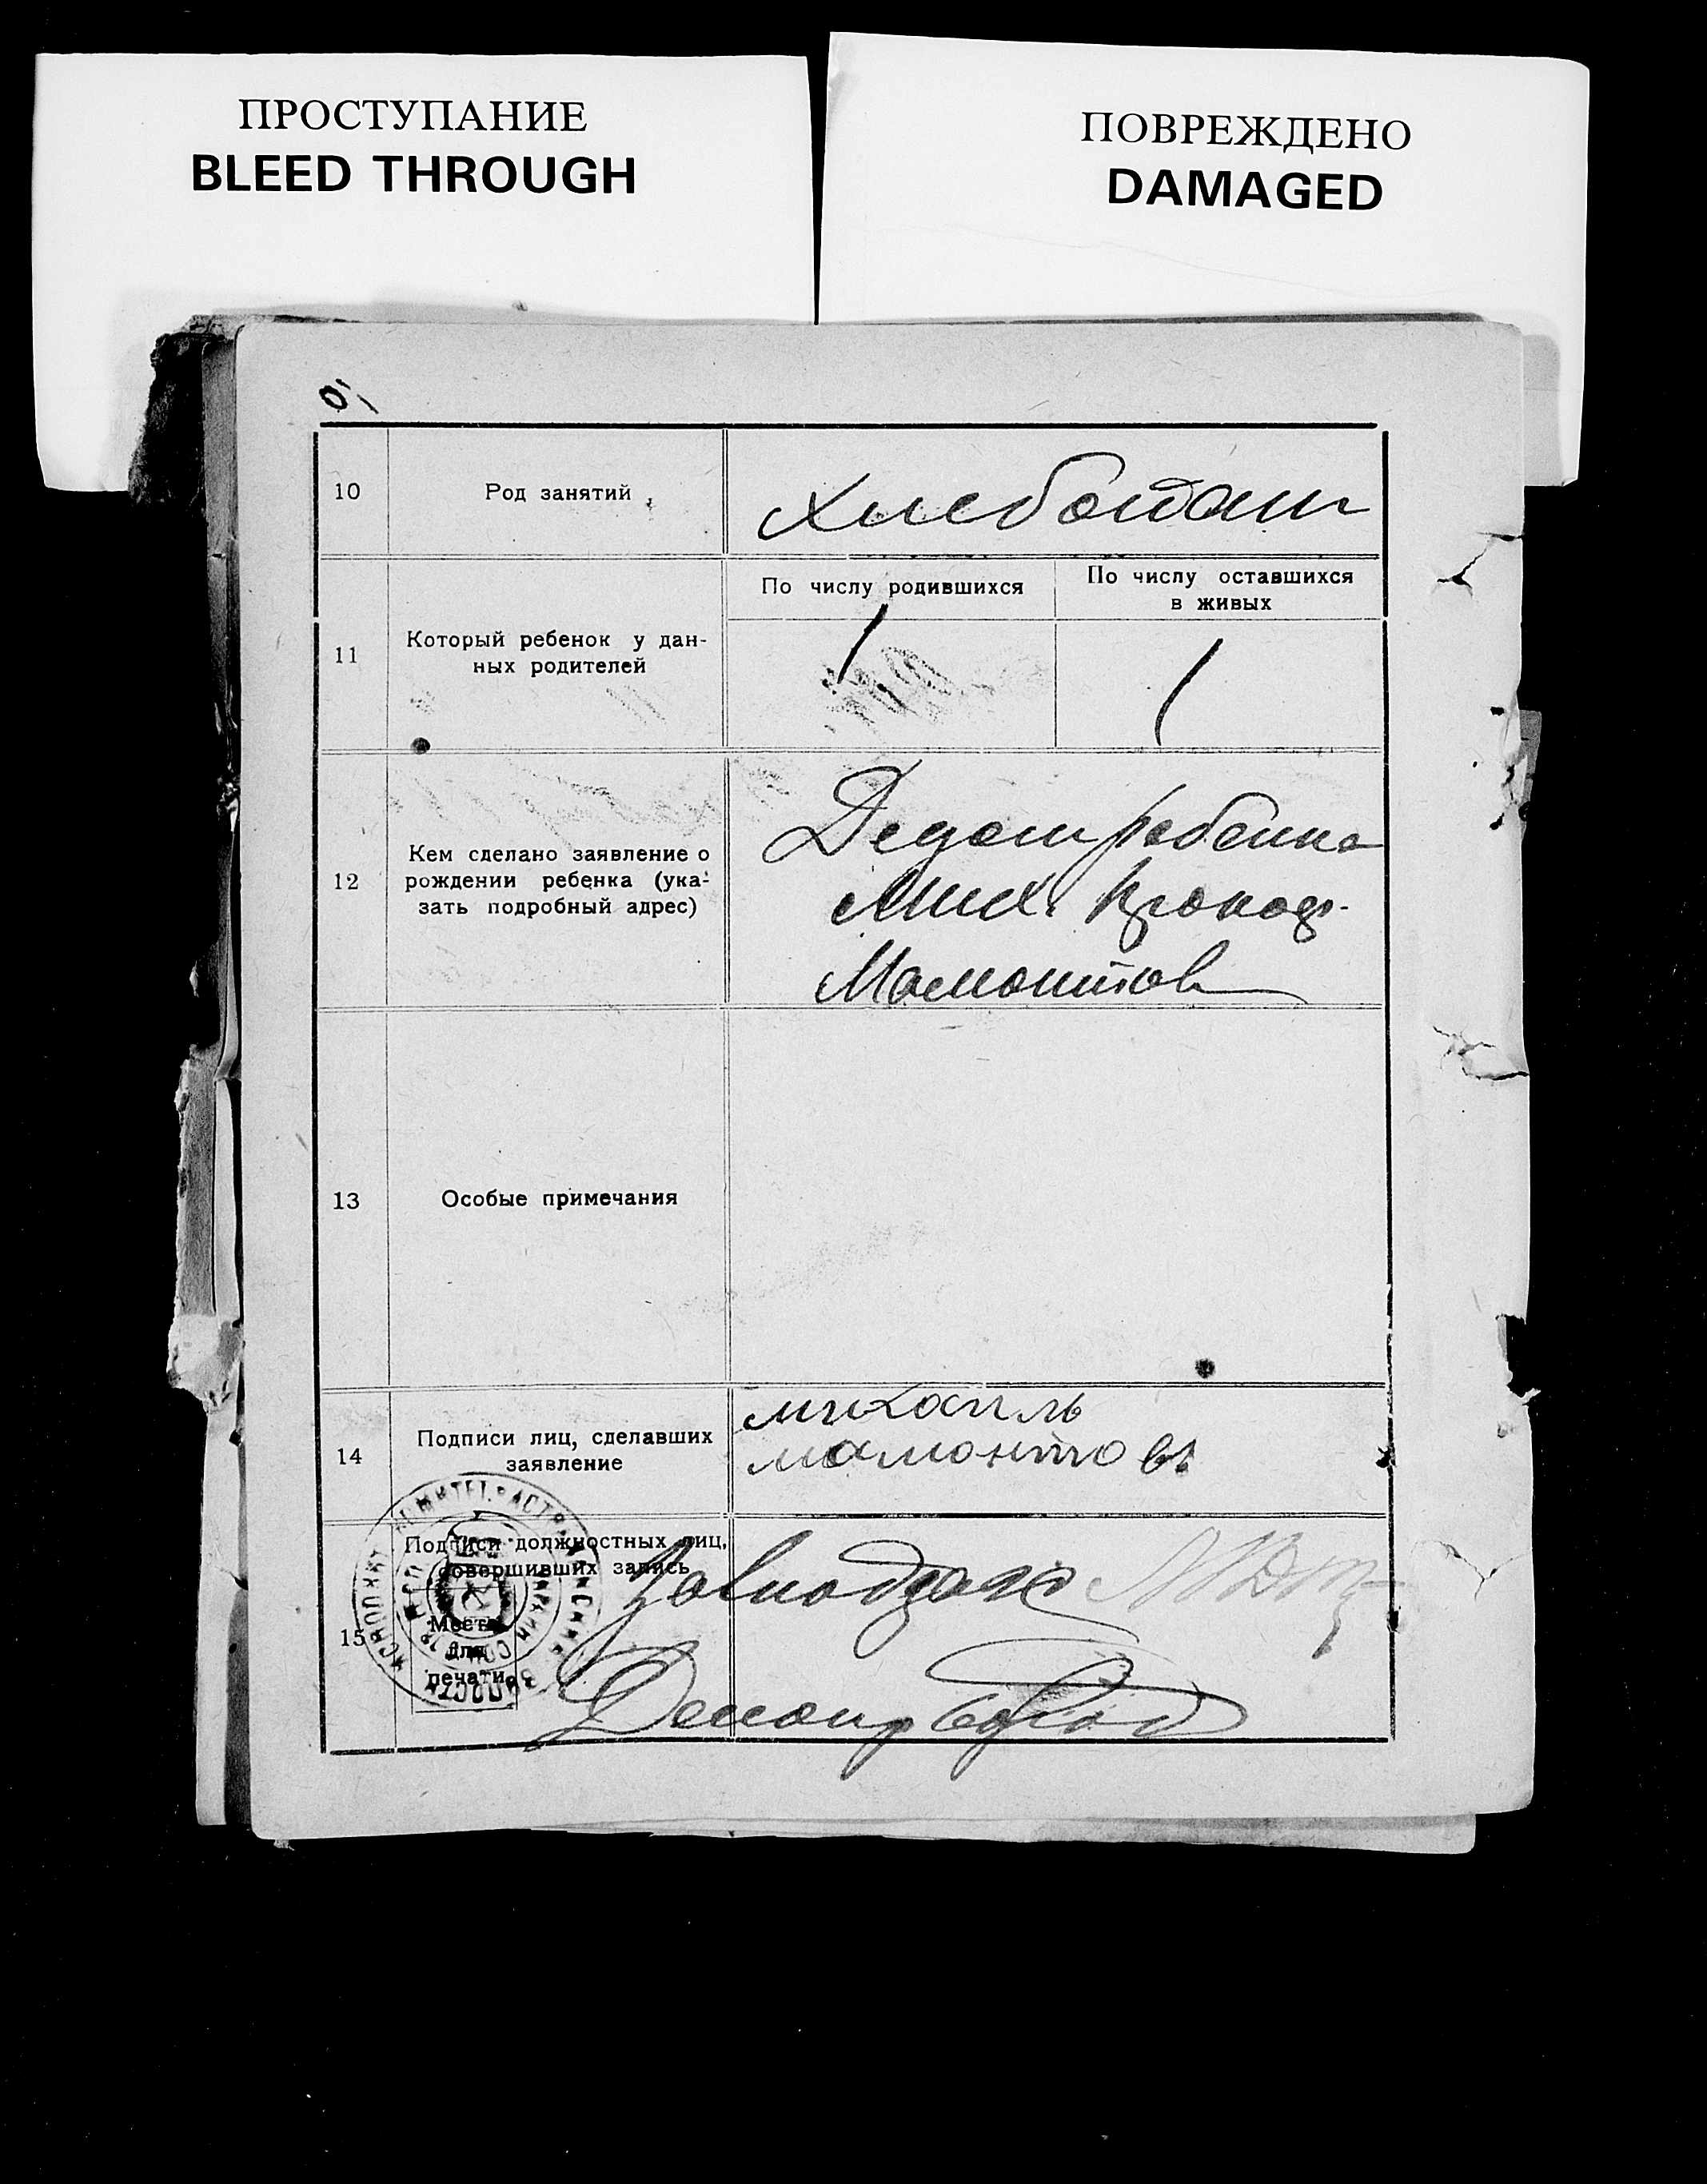 ПРОСТУПАНИЕ
BLEED THROUGH
ПОВРЕЖДЕНО
DAMAGED
10
Род занятий
Хлебопаш
11
Который ребенок у дан-
ных родителей
По числу родившихся
1
По числу оставшихся
в живых
1
12
Кем сделано заявление о
рождении ребенка (ука-
зать подробный адрес)
Дедом ребенка
Мих.
Мамонтов
13
Особые примечания
14
Подписи лиц, сделавших
заявление
михаиль
мамонтовъ
15
Подписи должностных лиц,
совершивших запись
Место
для
печати
Делопр